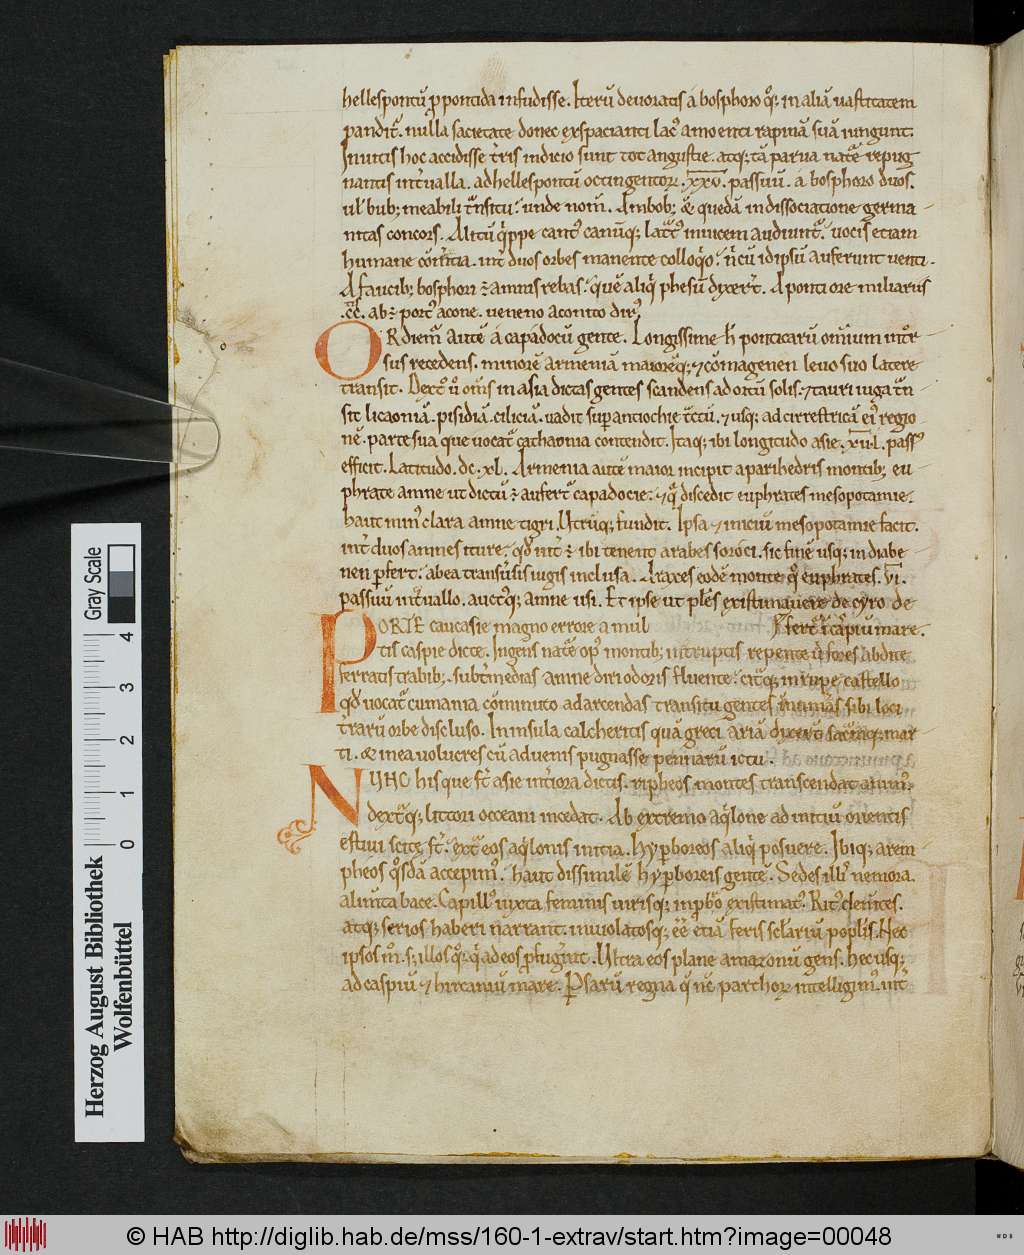 hellespontū ꝓpontida infudisse. Iterū deuoratis á bosphoro qͦꝫ in aliā uastitatem
pandit᷑. nulla sacietate donec exspacianti lacꝰ ameoti rapinā suā iungunt.
Inuitis hoc accidisse t̄ris indicio sunt tot angustie. atqꝫ tā parua nat᷑e repug
nantis int̄ualla. ad hellespontū octingentoꝝ. xxv. passuū. á bosphoro duos.
ul̓ bubꝫ meabili t̄nsitu. unde nom̄. Ambobꝫ & quedā in dissociatione germa
nitas concors. Alitū q̓ppe cantꝰ canūqꝫ lat᷑tꝰ inuicem audiunt᷑. uocis etiam
humane cōm̄tia. int̄ duos orbes manente colloqͦ. n̄ cū id ipsū auferunt uenti.
A faucibꝫ bosphori ē amnis rebas. quē aliq̓ phesū dyxert̄. A ponti ore miliariis
cc̄. abē portꝰ acone. ueneno aconito dirꝰ.
ORdiem᷑ autē á capadocū gente. Longissime h̓ ponticarū omīum intr̄or
sus recedens. minorē armeniā maiorēqꝫ. & cōmagenen leuo suo latere
transit. Dext̄o ū om̄s in asia dictas gentes scandens ad ortū solis. & tauri iuga t̄n
sit licaoniā. pisidiā. ciliciā. uadit suꝑ antiochie t̄ctū. & usqꝫ ad cirrestricā eiꝰ regio
nē. parte sua que uocat᷑ cathaonia contendit. Itaqꝫ ibi longitudo asie. xii. l. passꝰ
efficit. Latitudo. dc. xl. Armenia autē maior incipit a parihedris montibꝫ eu
phrate amne ut dictū ē aufert᷑ capadocie. & q̄ discedit euphrates mesopotamie.
haut minꝰ clara amne tigri. Utrūqꝫ fundit. Ipsa & inicīu mesopotamie facit.
int̄ duos amnes iture. qd̄ int̄ ē ibi tenent arabes soroci. sic finē usqꝫ in diabe
nen ꝑfert. ab ea transūsis iugis inclusa. Araxes eodē monte qͦ euphrates. vi.
passuū int̄uallo. auctꝰqꝫ amne usi. Et ipse ut ples̄ existimauere de cyro de
PORTE caucasie magno errore a mul fert᷑ ī caspiū mare.
tis caspie dicte. Ingens nat᷑e opꝰ montibꝫ int̄ruptis repente ū fores abdite
ferratis trabibꝫ. subt̄ medias amne diri odoris fluente. cit᷑qꝫ in rupe castello
qd̄ uocat᷑ cumania cōmunito ad arcendas transitu gentes īnumās sibi loci
t̄rarū orbe discluso. In insula calcheritis quā greci ariā dyxert̄ sacraqꝫ mar
ti. & in ea uolucres cū aduenis pugnasse pennarū ictu.
NUHC hisque st̄ asie int̄iora dictis. ripheos montes transcendat animꝰ
dext᷑aqꝫ littori occeani incedat. Ab extremo aq̓lone ad iniciū orientis
estiui scite st̄. ext᷑ eos aq̓lonis inicia. Hyꝑboreos aliq̓ posuere. Ibiqꝫ arem
pheos qͦsdā accepimꝰ. haut dissimilē hyꝑboreis gentē. Sedes illiꝰ nemora.
alimta bace. Capillꝰ iuxta feminis uirisqꝫ in ꝓbͦ existimatꝰ. Ritꝰ clem̄tes.
atqꝫ seríos haberi narrant. inuiolatosqꝫ eē etiā feris sclarū poplis. Nec
ipsos m̄. sꝫ illos qͦqꝫ q̓ ad eos ꝓfugīnt. Ultra eos plane amazonū gens. hec usqꝫ
ad caspiū & hircaniū mare. Psarū regna q̓ nc̄ parthoꝝ intelligimꝰ. int̄
0 1 2 3 4
Gray Scale
Herzog August Bibliothek
Wolfenbüttel
© HAB http://diglib.hab.de/mss/160-1-extrav/start.htm?image=00048